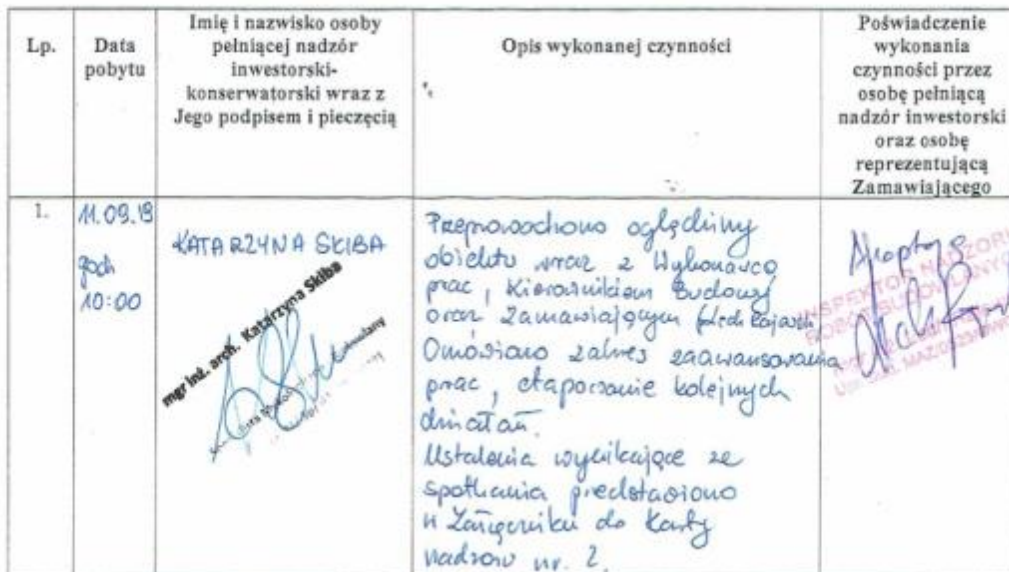 Lp.
Data
pobytu
Imię i nazwisko osoby
pełniącej nadzór
inwestorski-
konserwatorski wraz z
Jego podpisem i pieczęcią
Opis wykonanej czynności
Poświadczenie
wykonania
czynności przez
osobę pełniącą
nadzór inwestorski
oraz osobę
reprezentującą
Zamawiającego
1.
11.09.19
godz
10:00
KATARZYNA SKIBA
mgr inż. arch. Katarzyna Skiba
Przeprowadzono oględziny
obiektu wraz z Wykonawcą
prac, Kierownikiem Budowy
oraz Zamawiającym
Omówiono zakres zaawansowania
prac, etapowanie kolejnych
działań.
Ustalenia wynikające ze
spotkania przedstawiono
w Załączniku do Karty
nadzoru nr. 2.
Akceptuję
INSPEKTOR NADZORU
ROBÓT BUDOWLANYCH